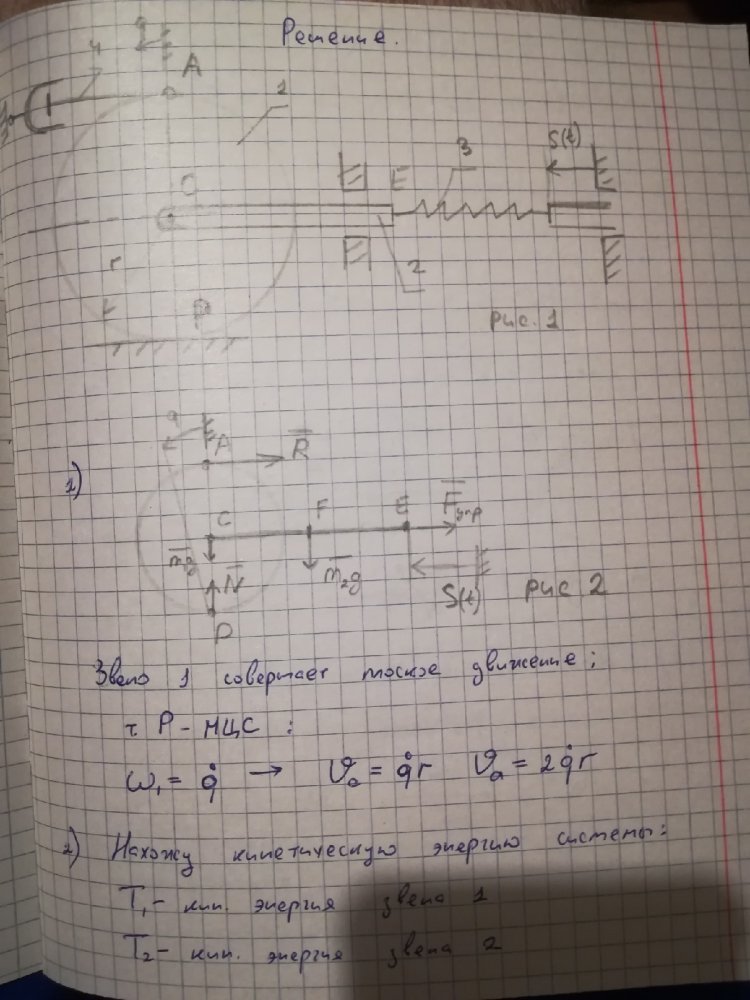 Решение.
q
4
A
1
S(t)
3
C
E
2
r
P
рис. 1
q
1)
A
R̅
C
F
E
F̅упр
m̅₁g
N̅
m̅₂g
S(t)
рис 2
P
Звено 1 совершает плоское движение:
т P - МЦС :
ω₁ = q̇ → 𝒱c = q̇r 𝒱a = 2q̇r
2) Нахожу кинетическую энергию системы:
T₁ - кин. энергия звена 1
T₂ - кин. энергия звена 2